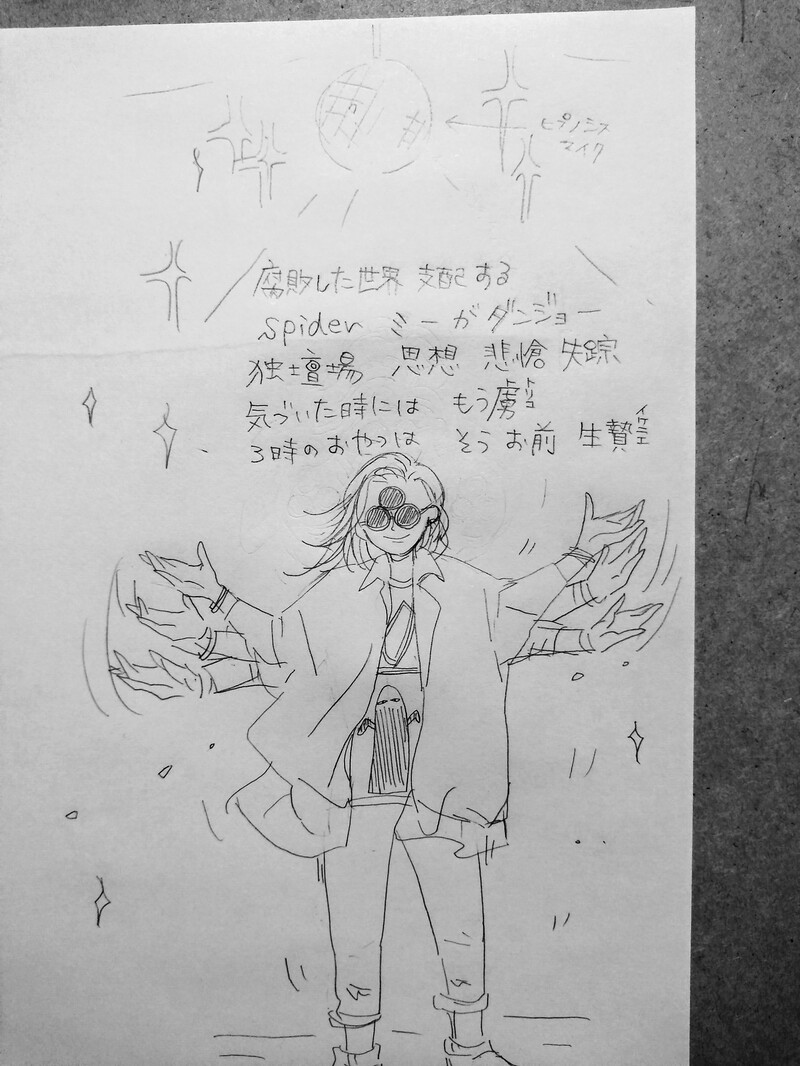 ヒプノシス
マイク
腐敗した世界 支配する
spider ミーがダンジョー
独壇場 思想 悲愴 失踪
気づいた時には もう虜
トリコ
3時のおやつは そうお前 生贄
イケニエ